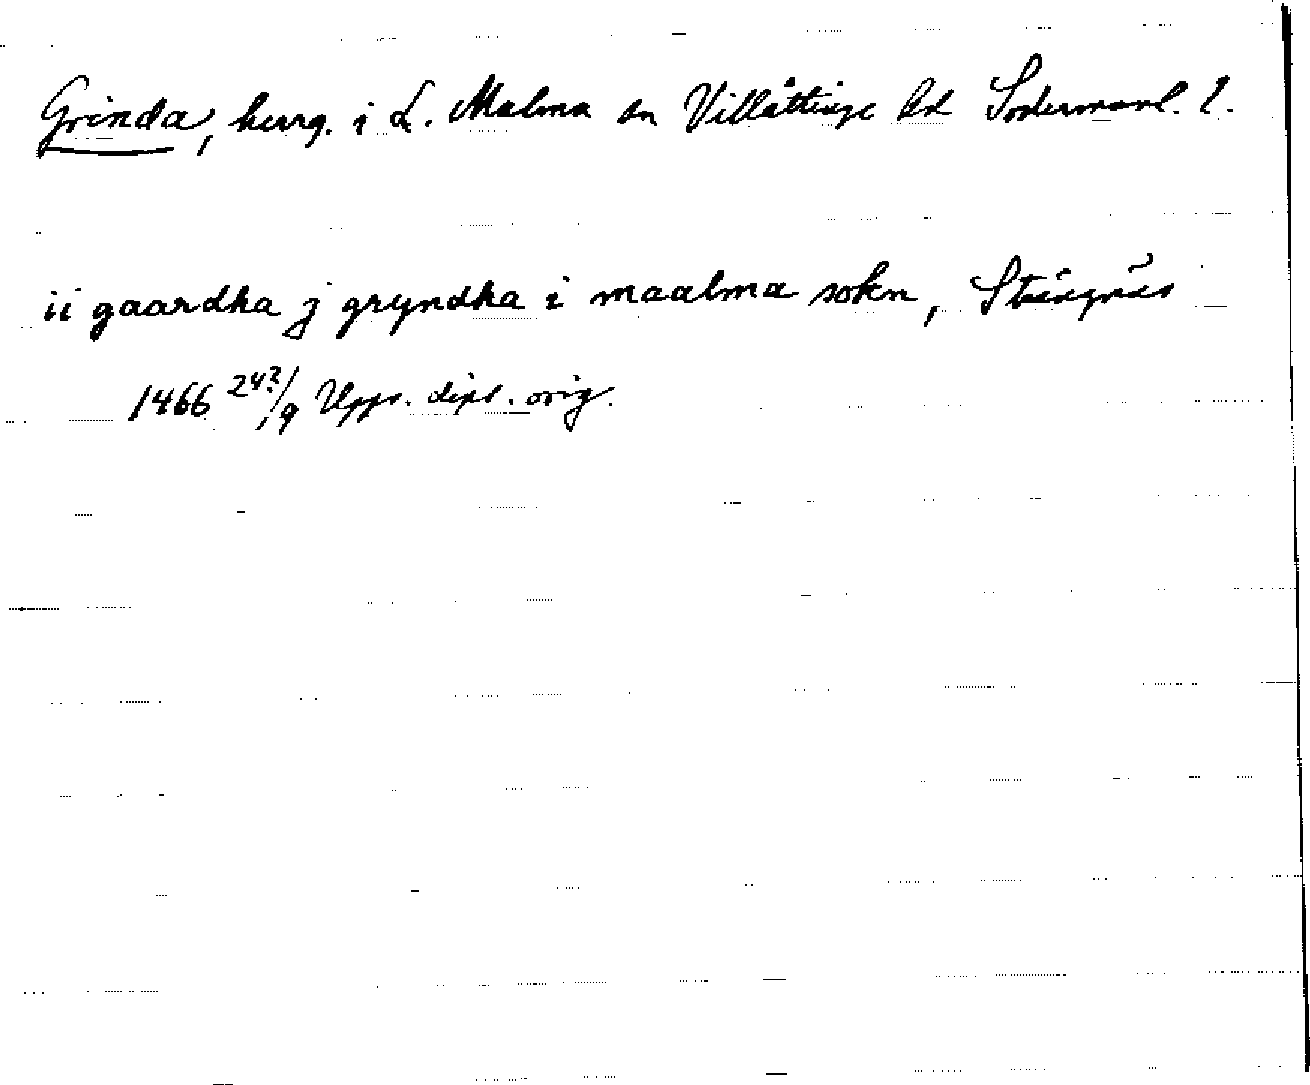 Grinda, herrg. i L. Malma sn Villåttinge hd Södermanl. l.
ii gaardha j gryndha i maalma sokn, Strängnäs
1466 24?/9 Upps. dipl. orig.